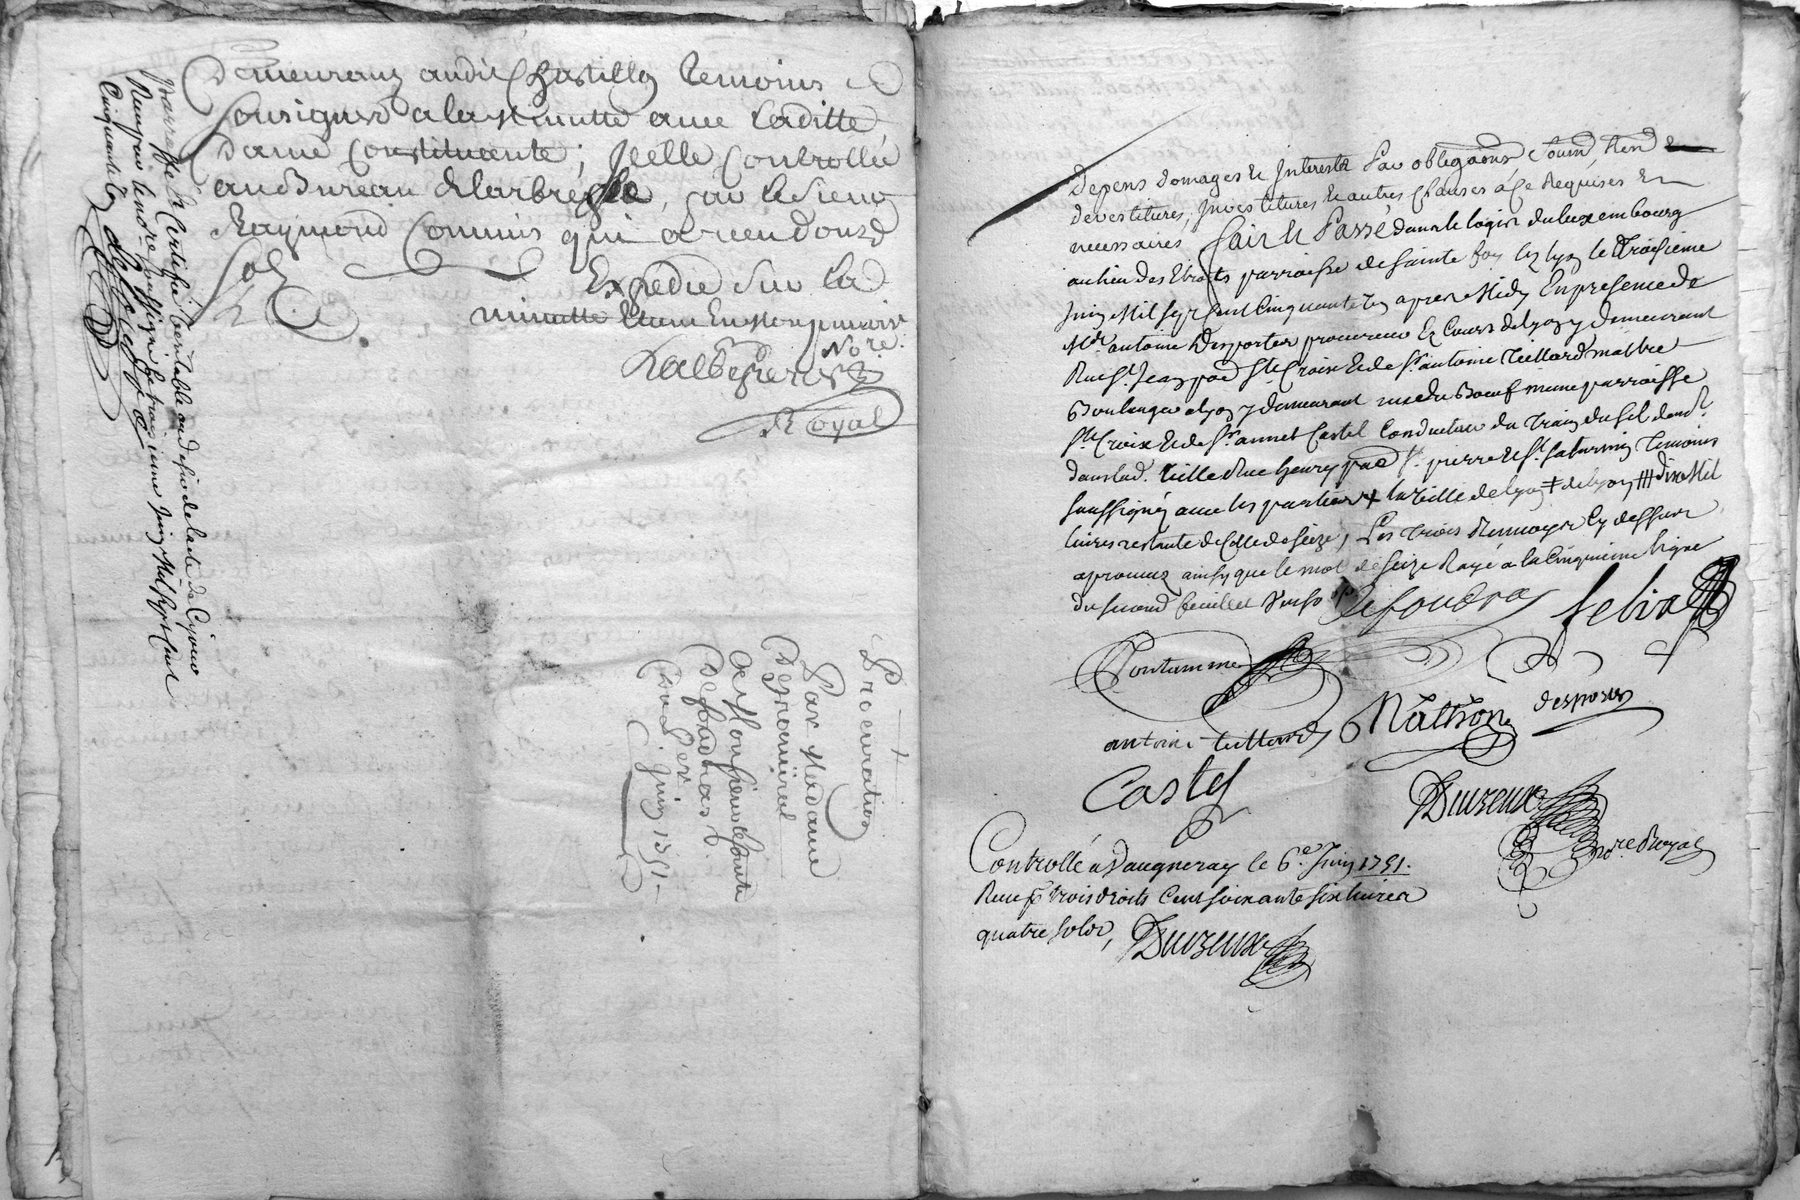 Demeurant audit Chastillon temoins
sousignés a la minutte avec laditte
Dame constituante; Icelle Controllée
au Bureau de larbresle, par le sieur
Raymond Commis qui a receu douze
sols
Expedié sur la
minutte Etant En mon pouvoir
Nore.
Royal
paraphé et Certiffié veritable au desir de lacte de Cejourd
Reçu par le nore soussigné le troisieme Juin Mil sept Cent
Cinquante Un
Procuration
Par Madame
De
a Monsieur le Comte
Defoudras
Du 1er
Juin 1751
depens domages et Interests Par obligaons soumons Renons
devestitures, Investitures et autres Clauses à Ce Requises Et
necessaires, Fait et Passé dans le logis du luxembourg
au lieu des Etroits parroisse de sainte foy lez lyon le Troisieme
Juin Mil sept Cent Cinquante Un apres Midy En presence de
Mr. antoine Desportes procureur Ez Cours de lyon y demeurant
Rue St. Jean pse Ste Croix Et de Sr. antoine Teillard maitre
Boulanger a lyon y demeurant rue du Boeuf meme parroisse
Ste Croix Et de Sr. annet Castel Conducteur du Train du sel demt.
dans lad. Ville Rue henry pse St. pierre et St. saturnin Temoins
soussignés avec les parties ‡ la Ville de lyon ‡ de lyon ||| dix Mil
livres restante de Celle de seize, Les Trois Renvoys Cy dessus
aprouvez ainsy que le mot de seize Rayé a la Cinquieme ligne
du second feuillet Verso
Defoudras felix
Fontanme
antoine teillard Nathon desportes
Castel
Duizeux
nore Royal
Controllé à Vaugneray le 6e. Juin 1751.
Reçu pr trois droits Cent soixante six livres
quatre sols, Duizeux